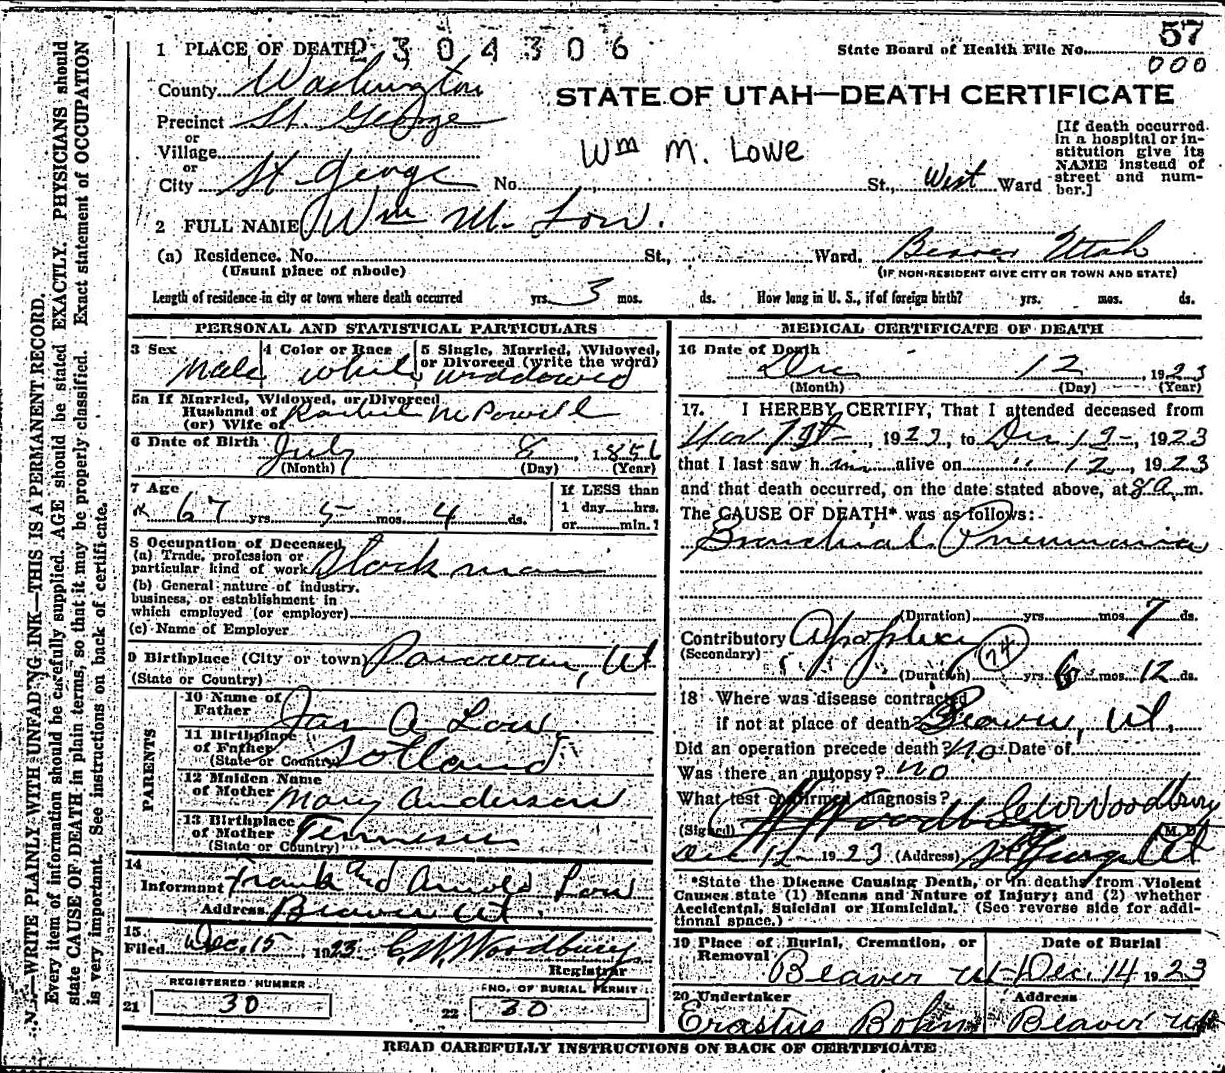 57
1 PLACE OF DEATH 2304306 State Board of Health File No. 000
County Washington
STATE OF UTAH—DEATH CERTIFICATE
Precinct St. George
or
Village
or
City St George No. St., West Ward
Wm M. Lowe
[If death occurred in a hospital or institution give its NAME instead of street and number.]
2 FULL NAME Wm M. Low.
(a) Residence. No. St., Ward. Beaver Utah
(Usual place of abode) (IF NON-RESIDENT GIVE CITY OR TOWN AND STATE)
Length of residence in city or town where death occurred yrs. 3 mos. ds. How long in U. S., if of foreign birth? yrs. mos. ds.
PERSONAL AND STATISTICAL PARTICULARS
3 Sex 4 Color or Race 5 Single, Married, Widowed, or Divorced (write the word)
Male White Widdowed
5a If Married, Widowed, or Divorced
Husband of
(or) Wife of
6 Date of Birth
July 8, 1856
(Month) (Day) (Year)
7 Age If LESS than
1 day hrs.
67 yrs. 5 mos. 4 ds. or min.?
8 Occupation of Deceased
(a) Trade, profession or
particular kind of work Stock man
(b) General nature of industry,
business, or establishment in
which employed (or employer)
(c) Name of Employer
9 Birthplace (City or town) Parowan, Ut
(State or Country)
PARENTS
10 Name of
Father Jas A Low
11 Birthplace
of Father Scotland
(State or Country)
12 Maiden Name
of Mother Mary Anderson
13 Birthplace
of Mother
(State or Country)
14
Informant Frank and Arnold Low
Address Beaver Ut.
15
Filed Dec. 15 1923 C.W. Woodbury
Registrar
REGISTERED NUMBER NO. OF BURIAL PERMIT
21 30 22 30
MEDICAL CERTIFICATE OF DEATH
16 Date of Death
Dec 12, 1923
(Month) (Day) (Year)
17. I HEREBY CERTIFY, That I attended deceased from
Nov , 1923, to Dec 12, 1923
that I last saw him alive on " 12, 1923
and that death occurred, on the date stated above, at 8 A. m.
The CAUSE OF DEATH* was as follows:
Bronchial Pneumonia
(Duration) yrs. mos. 7 ds.
Contributory Apoplexy
(Secondary) 74
(Duration) yrs. 6 mos. 12 ds.
18 Where was disease contracted
if not at place of death? Beaver, Ut.
Did an operation precede death? No Date of
Was there an autopsy? no
What test confirmed diagnosis?
(Signed) C W Woodbury M. D.
Dec 12 1923 (Address) St George Ut
*State the Disease Causing Death, or in deaths from Violent
Causes state (1) Means and Nature of Injury; and (2) whether
Accidental, Suicidal or Homicidal. (See reverse side for additional space.)
19 Place of Burial, Cremation, or Date of Burial
Removal
Beaver Ut Dec. 14 1923
20 Undertaker Address
Erastus Bohn Beaver Ut
READ CAREFULLY INSTRUCTIONS ON BACK OF CERTIFICATE
N. B.—WRITE PLAINLY WITH UNFADING INK—THIS IS A PERMANENT RECORD.
Every item of information should be carefully supplied. AGE should be stated EXACTLY. PHYSICIANS should
state CAUSE OF DEATH in plain terms, so that it may be properly classified. Exact statement of OCCUPATION
is very important. See instructions on back of certificate.